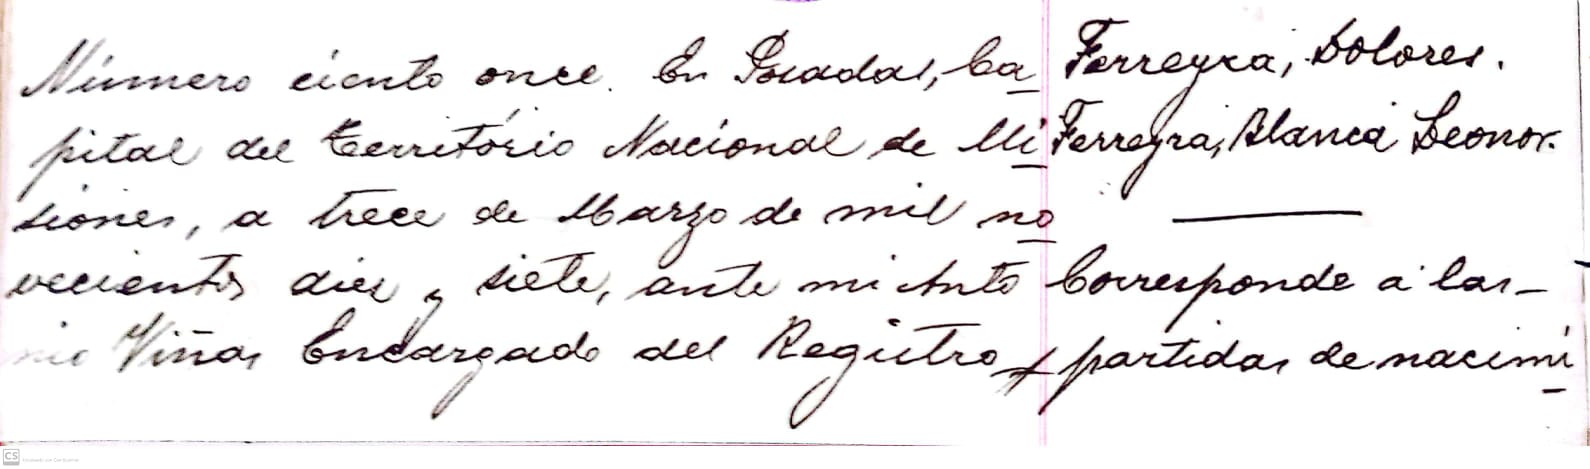 Número ciento once. En Posadas, Ca
pital del território Nacional de Mi
siones, a trece de Marzo de mil no
vecientos diez y siete, ante mi Anto
nio Viñas Encargado del Registro
Ferreyra, Dolores.
Ferreyra, Blanca Leonor.
Corresponde a las
partidas de nacimi
CS